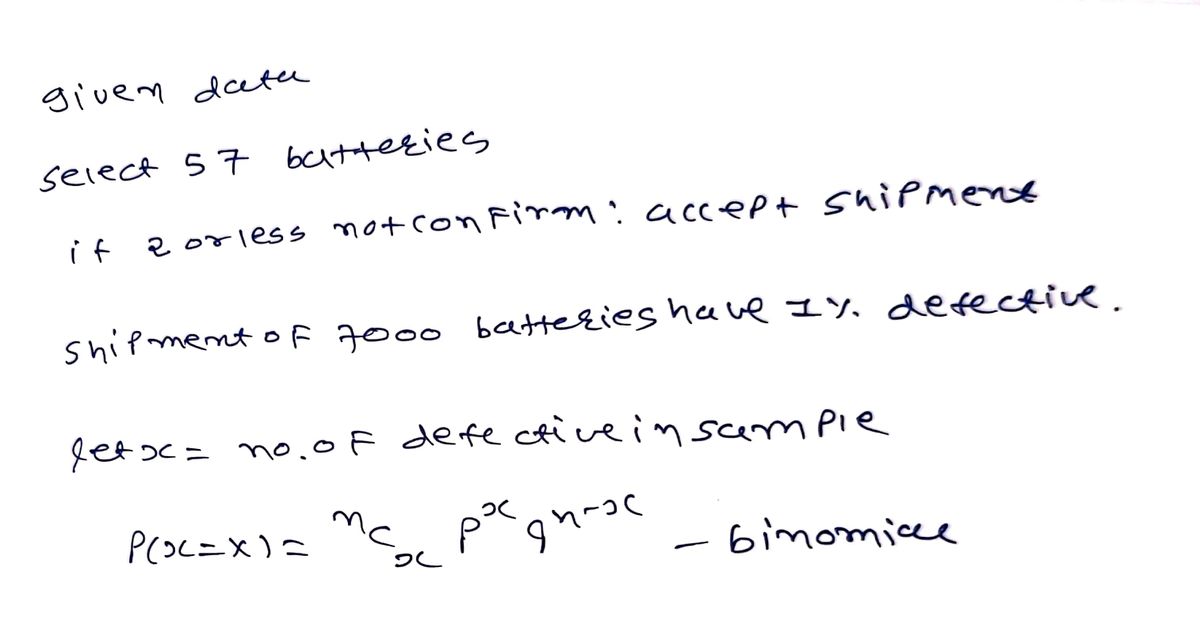 given data
select 57 batteries
if 2 or less not confirm: accept shipment
shipment of 7000 batteries have 1% defective.
let x = no. of defective in sample
P(x=x) = ⁿCₓ pˣ qⁿ⁻ˣ - binomial